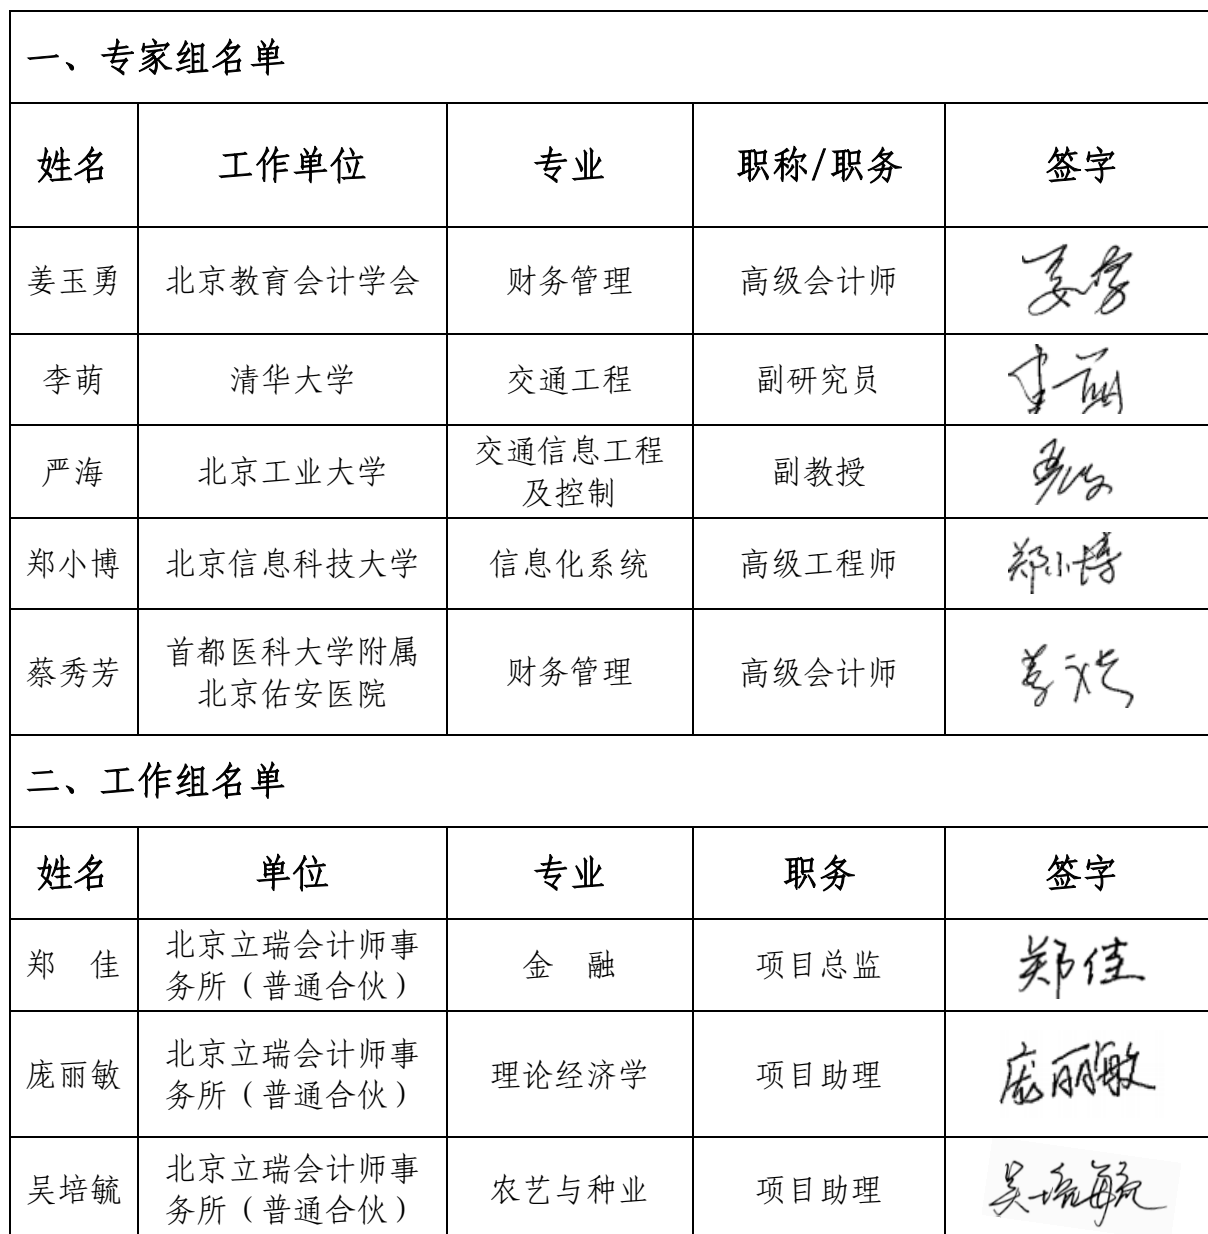 一、专家组名单
姓名 工作单位 专业 职称/职务 签字
姜玉勇 北京教育会计学会 财务管理 高级会计师
李萌 清华大学 交通工程 副研究员
严海 北京工业大学 交通信息工程
及控制 副教授
郑小博 北京信息科技大学 信息化系统 高级工程师 郑小博
蔡秀芳 首都医科大学附属
北京佑安医院 财务管理 高级会计师
二、工作组名单
姓名 单位 专业 职务 签字
郑 佳 北京立瑞会计师事
务所（普通合伙） 金 融 项目总监 郑佳
庞丽敏 北京立瑞会计师事
务所（普通合伙） 理论经济学 项目助理 庞丽敏
吴培毓 北京立瑞会计师事
务所（普通合伙） 农艺与种业 项目助理 吴培毓